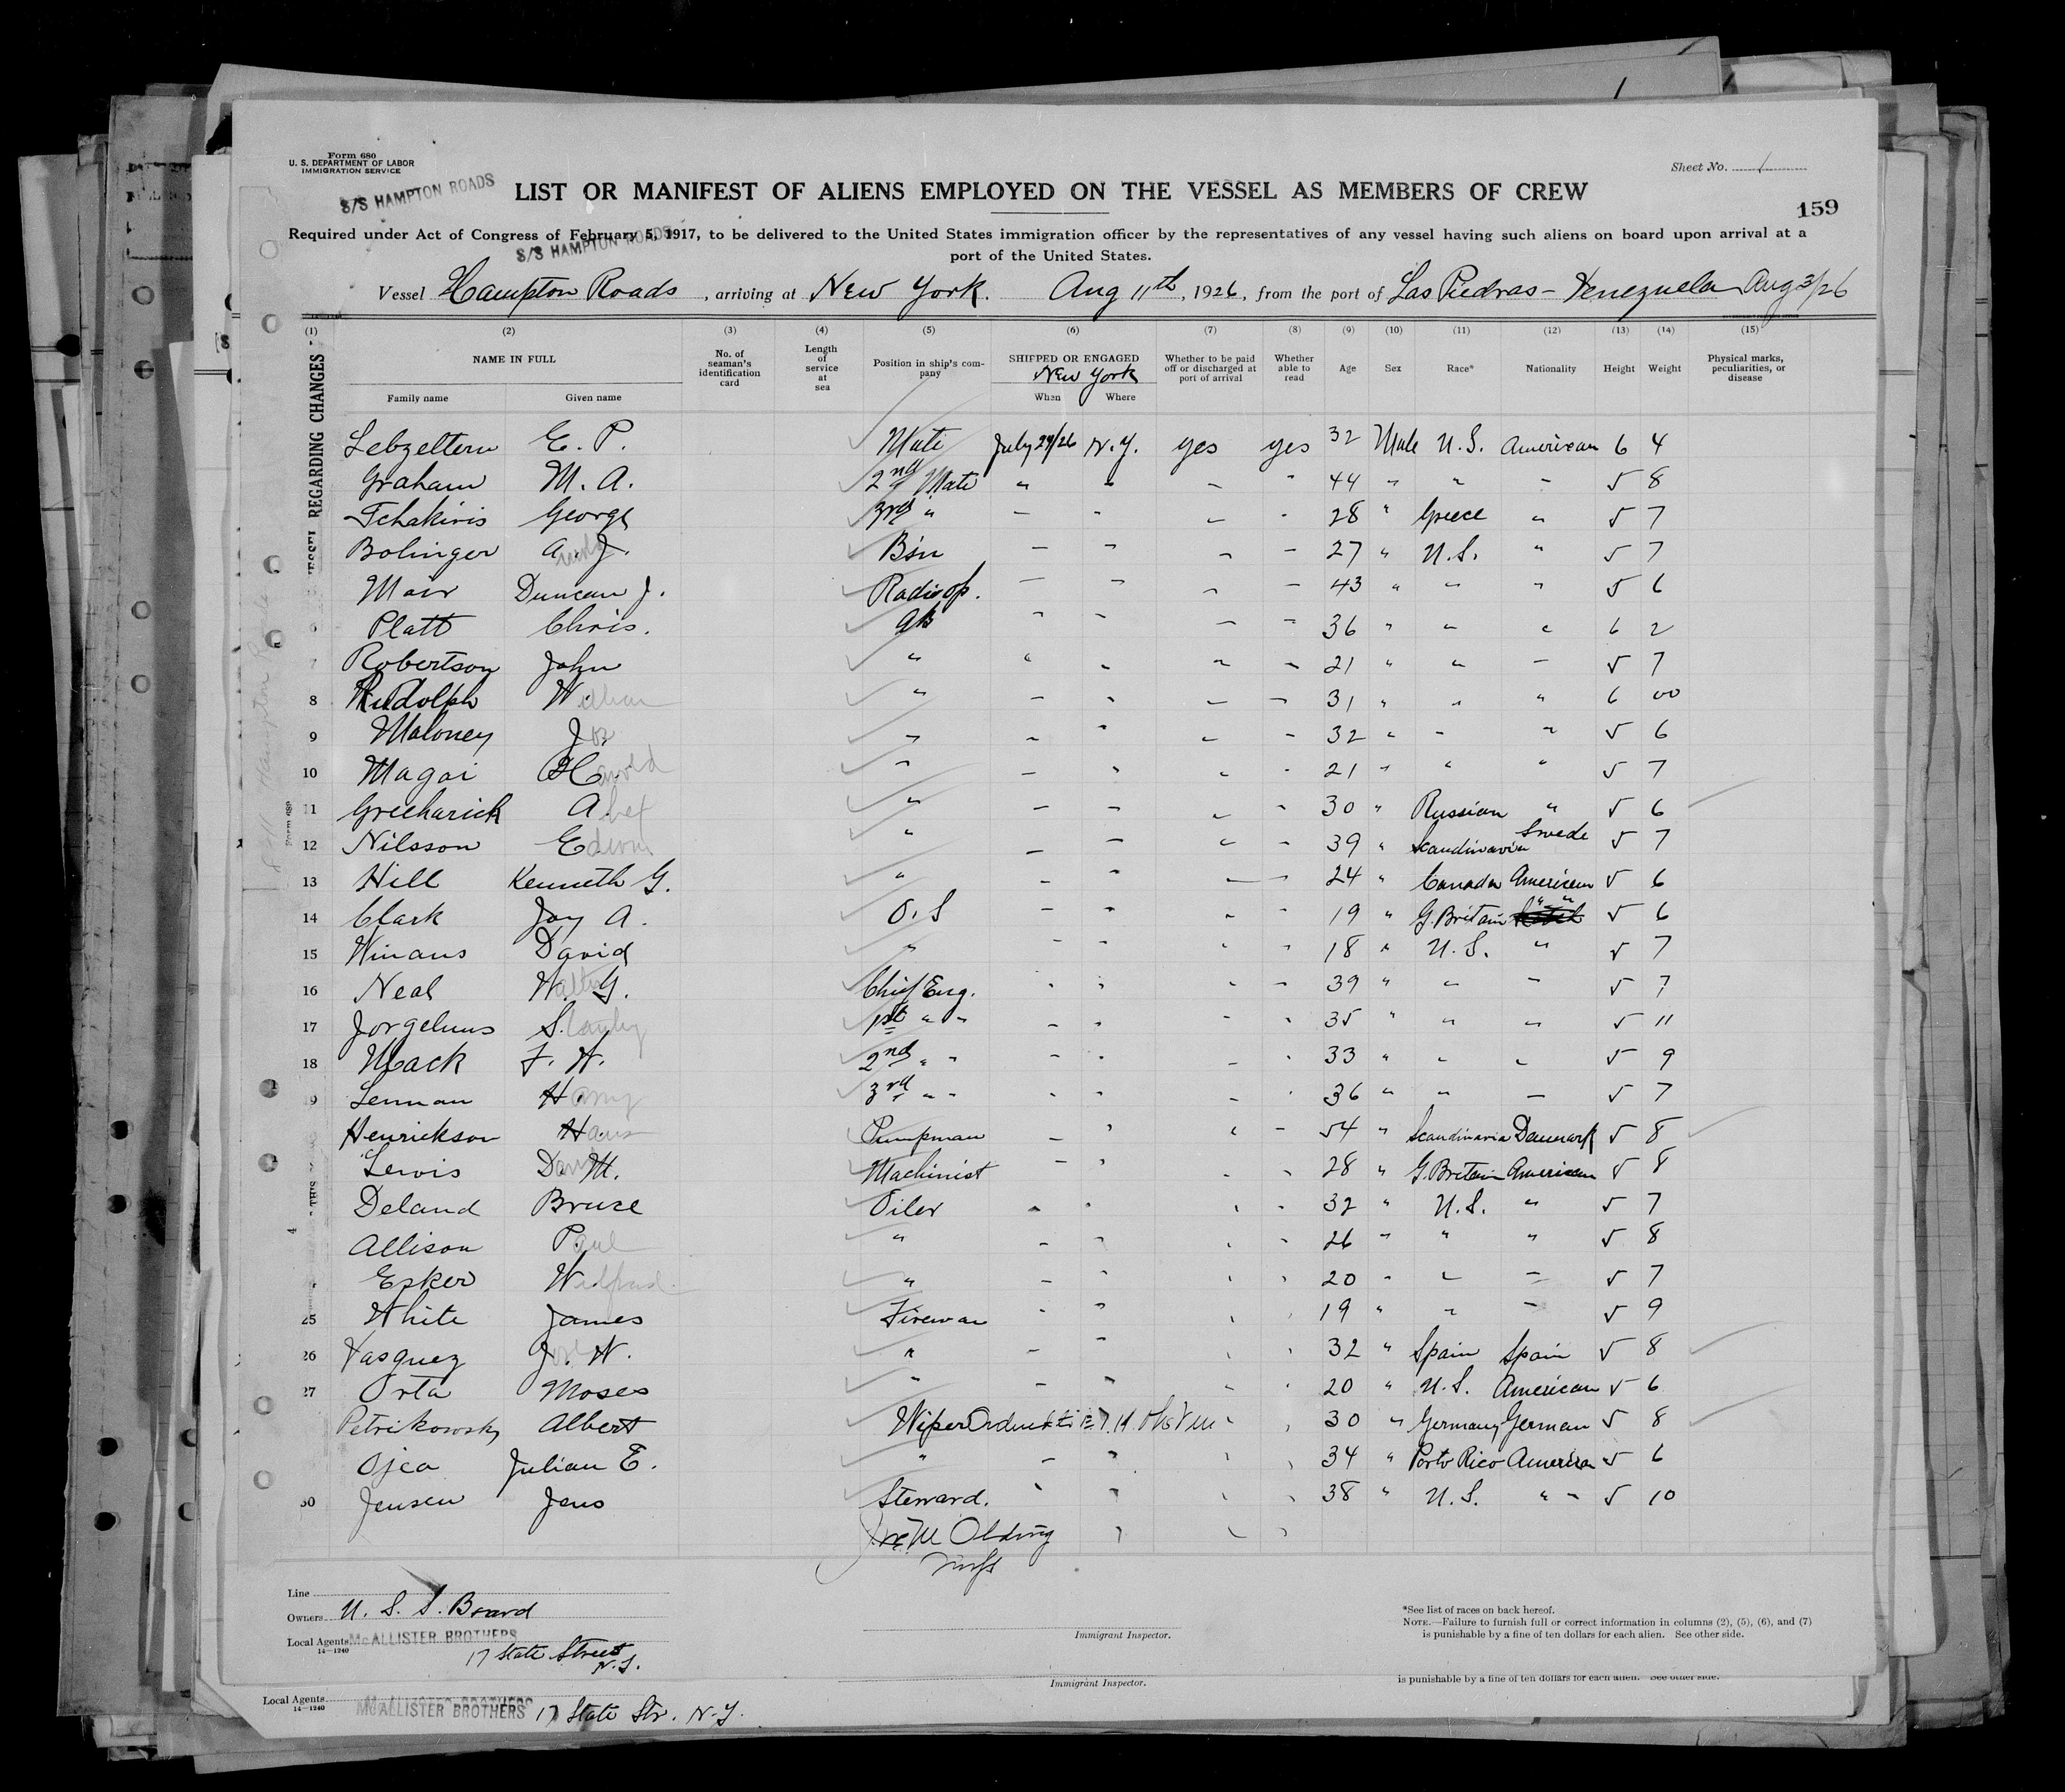 Form 680
U. S. DEPARTMENT OF LABOR
IMMIGRATION SERVICE
S/S HAMPTON ROADS
Sheet No. 1
LIST OR MANIFEST OF ALIENS EMPLOYED ON THE VESSEL AS MEMBERS OF CREW
159
Required under Act of Congress of February 5, 1917, to be delivered to the United States immigration officer by the representatives of any vessel having such aliens on board upon arrival at a
S/S HAMPTON ROADS
port of the United States.
Vessel Hampton Roads, arriving at New York. Aug 11th, 1926, from the port of Las Piedras - Venezuela Aug 3/26
(1) (2) (3) (4) (5) (6) (7) (8) (9) (10) (11) (12) (13) (14) (15)
NAME IN FULL No. of seaman's identification card Length of service at sea Position in ship's company SHIPPED OR ENGAGED New York Whether to be paid off or discharged at port of arrival Whether able to read Age Sex Race* Nationality Height Weight Physical marks, peculiarities, or disease
Family name Given name When Where
VESSEL REGARDING CHANGES
Lebzeltern E. P. Mate July 29/26 N.Y. yes yes 32 Male U.S. American 6 4
Graham M. A. 2nd Mate " " " " 44 " " " 5 8
Tchakiris George 3rd " " " " " 28 " Greece " 5 7
Bolinger A. J. Bsn " " " " 27 " U.S. " 5 7
Moir Duncan J. Radio op. " " " " 43 " " " 5 6
Platt Chris. AB " " " " 36 " " " 6 2
7 Robertson John " " " " " 21 " " " 5 7
8 Rudolph William " " " " " 31 " " " 6 00
9 Maloney Jos " " " " " 32 " " " 5 6
10 Magai Harold " " " " " 21 " " " 5 7
11 Greeharick Alex " " " " " 30 " Russian " 5 6
12 Nilsson Edwin " " " " " 39 " Scandinavia Swede 5 7
13 Hill Kenneth G. " " " " " 24 " Canada American 5 6
14 Clark Jay A. O.S " " " " 19 " G. Britain " " 5 6
15 Winans David " " " " " 18 " U.S. " 5 7
16 Neal Walter G. Chief Eng. " " " " 39 " " " 5 7
17 Jorgelnus Stanley 1st " " " " " " 35 " " " 5 11
18 Mack F. H. 2nd " " " " " " 33 " " " 5 9
19 Lenman Harry 3rd " " " " " " 36 " " " 5 7
Henrickson Hans Pumpman " " " " 54 " Scandinavia Denmark 5 8
Lewis Dan M. Machinist " " " " 28 " G. Britain American 5 8
Deland Bruce Oiler " " " " 32 " U.S. " 5 7
Allison Paul " " " " " 26 " " " 5 8
Esker Wilfred " " " " " 20 " " " 5 7
25 White James Fireman " " " " 19 " " " 5 9
26 Vasquez J. W. " " " " " 32 " Spain Spain 5 8
27 Orta Moses " " " " " 20 " U.S. American 5 6
Petrikowsky Albert Wiper " " 30 " Germany German 5 8
Ojea Julian E. " " " " " 34 " Porto Rico American 5 6
30 Jensen Jens Steward. " " " " 38 " U.S. " " 5 10
Line
Owners U. S. S. Board
Local Agents McALLISTER BROTHERS
14—1240
17 State Street
N.Y.
Immigrant Inspector.
*See list of races on back hereof.
NOTE.—Failure to furnish full or correct information in columns (2), (5), (6), and (7)
is punishable by a fine of ten dollars for each alien. See other side.
Immigrant Inspector.
is punishable by a fine of ten dollars for each alien. See other side.
Local Agents McALLISTER BROTHERS 17 State Str. N.Y.
14—1240